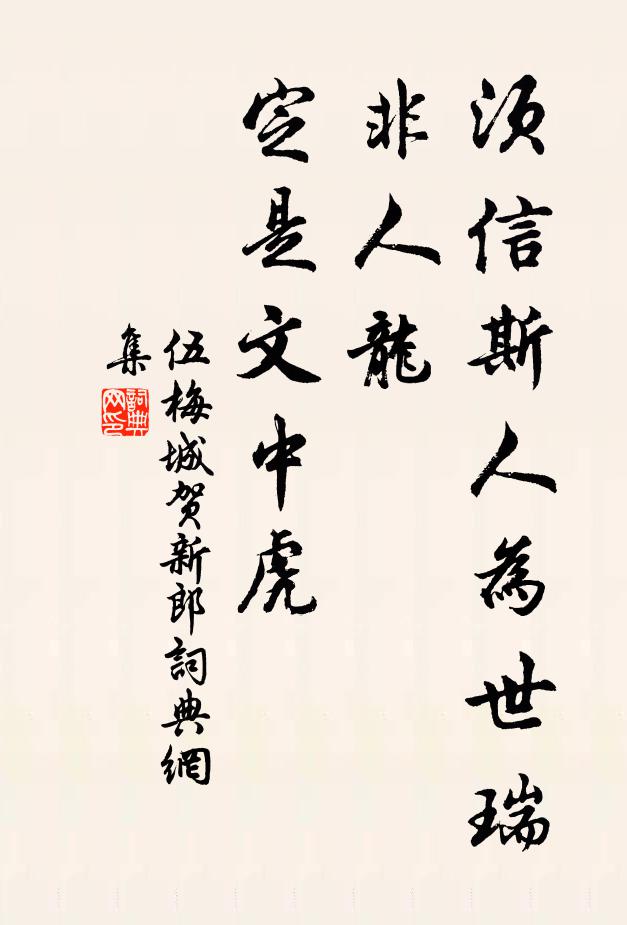 须信斯人為世瑞
非人龍
定是文中虎
伍梅城贺新郎詞典網
集
詞典
网印